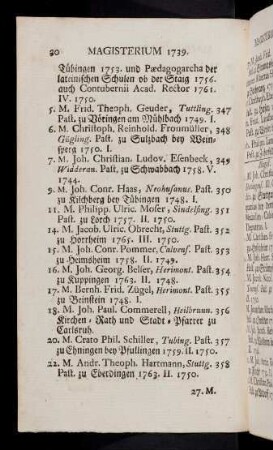 20 MAGISTERIUM 1739.
Tübingen 1753. und Pædagogarcha der
lateinischen Schulen ob der Staig 1756.
auch Contubernii Acad. Rector 1761.
IV. 1750.
5. M. Frid. Theoph. Geuder, Tuttling. 347
Past. zu Vöringen am Mühlbach 1749. I.
6. M. Christoph, Reinhold. Frommüller, 348
Gügling. Past. zu Sulzbach bey Wein-
sperg 1750. I.
7. M. Joh. Christian. Ludov. Esenbeck, 349
Widderan. Past. zu Schwabbach 1758. V.
1744.
9. M. Joh. Conr. Haas, Neohusanus. Past. 350
zu Kilchberg bey Tübingen 1748. I.
11. M. Philipp. Ulric. Moser, Sindelfing. 351
Past. zu Lorch 1757. II. 1750.
14. M. Jacob. Ulric. Obrecht, Stuttg. Past. 352
zu Horrheim 1765. III. 1750.
15. M. Joh. Conr. Pommer, Past. 353
zu Heimsheim 1758. II. 1749.
16. M. Joh. Georg. Beller, Herimont. Past. 354
zu Kuppingen 1763. II. 1748.
17. M. Bernh. Frid. Zügel, Herimont. Past. 355
zu Beinstein 1748. I.
18. M. Joh. Paul. Commerell, Heilbrunn. 356
Kirchen- Rath und Stadt- Pfarrer zu
Carlsruh.
20. M. Crato Phil. Schiller, Tubing. Past. 357
zu Ehningen bey Pfullingen 1759. II. 1750.
22. M. Andr. Theoph. Hartmann, Stuttg. 358
Past. zu Eberdingen 1763. II. 1750.
27. M.